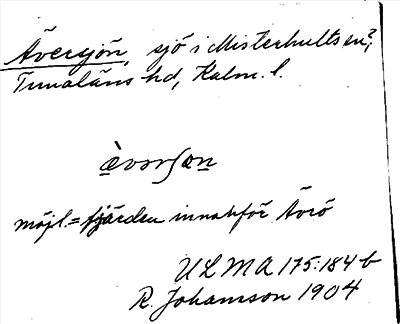 Äversjön, sjö i Misterhults sn?,
Tunaläns hd, Kalm. l.
àvərʃøn
möjl. = fjärden innanför Ävrö
ULMA 175:184 b
R. Johansson 1904